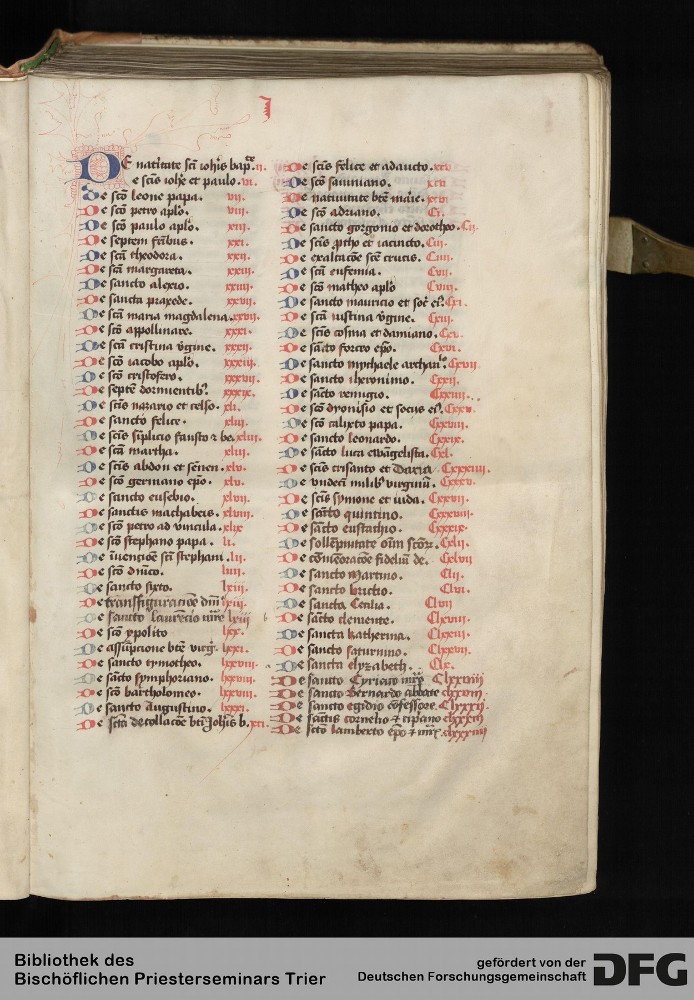 De natitate sci iohis bap. ii.
De scis iohe et paulo. vi.
De sco leone papa. vii.
De sco petro aplo. viii.
De sco paulo aplo. xiii.
De septem fribus. xxi.
De sca theodora. xxii.
De sca margareta. xxiii.
De sancto alexio. xxiiii.
De sancta praxede. xxvii.
De sca maria magdalena. xxvii.
De sco appollinare. xxxi.
De sca cristina vgine. xxxii.
De sco iacobo aplo. xxxiii.
De sco cristofero. xxxvii.
De septe dormientib. xxxix.
De scis nazario et celso. xli.
De sancto felice. xlii.
De scis simplicio fausto et be. xliii.
De sca martha. xliii.
De scis abdon et sennen. xlv.
De sco germano epo. xlv.
De sancto eusebio. xlvii.
De sanctis machabeis. xlviii.
De sco petro ad vincula. xlix
De sco stephano papa. li.
De inuencioe sci stephani. lii.
De sco dnico. liiii.
De sancto sixto. lxiii.
De transfiguracioe dni lxiii.
De sancto laurencio mre lxiii
De sco ypolito lxx.
De assupcione bte virg. lxxi.
De sancto tymotheo. lxxviii.
De sacto symphoriano. lxxviii.
De sco bartholomeo. lxxviii.
De sancto augustino. lxxxi.
De scta decollacoe bti Johis b. xci.
De scis felice et adaucto. xcv
De sco sauiniano. xcv
De natiuitate bte marie. xcvi
De sco adriano. Ci.
De sancto gorgonio et dorotheo. Cii
De scis ptho et iacincto. Ciii.
De exaltacoe sce crucis. Ciiii.
De sca eufemia. Cvii.
De sco matheo aplo Cviii.
De sancto mauricio et soc ei. Cxi.
De sca iustina vgine. Cxiii.
De scis cosma et damiano. Cxv.
De sacto forceo epo. Cxvi.
De sancto mychaele archan. Cxvii.
De sancto iheronimo. Cxxii.
De sacto remigio. Cxxiiii.
De sco dyonisio et socus ei. Cxxv.
De sco calixto papa. Cxxviii.
De sancto leonardo. Cxxix.
De sacto luca ewangelista. Cxl.
De scis crisanto et Daria. Cxxxiiii.
De vndeci milib virginu. Cxxxv.
De scis symone et iuda. Cxxxvii.
De scto quintino. Cxxxviii.
De sacto eustachio. Cxxxix.
De sollepnitate oim scor. Cxlii.
De comeoracoe fideliu de. Cxlvii
De sancto Martino. Clii.
De sancto brictio. Clvi.
De sancta Cecilia. Clvii
De sacto clemente. Clxviii.
De sancta katherina. Clxxii.
De sancto saturnino. Clxxvii.
De sancta elyzabeth. Clx.
De sancto Cyriaco mre Clxxviii
De sancto Bernardo abbate clxxviii
De sancto egidio cofessore. Clxxxii
De sactis cornelio et cipiano clxxxiii
De scto lamberto epo et mre. clxxxiiii
Bibliothek des
Bischöflichen Priesterseminars Trier
gefördert von der
Deutschen Forschungsgemeinschaft
DFG